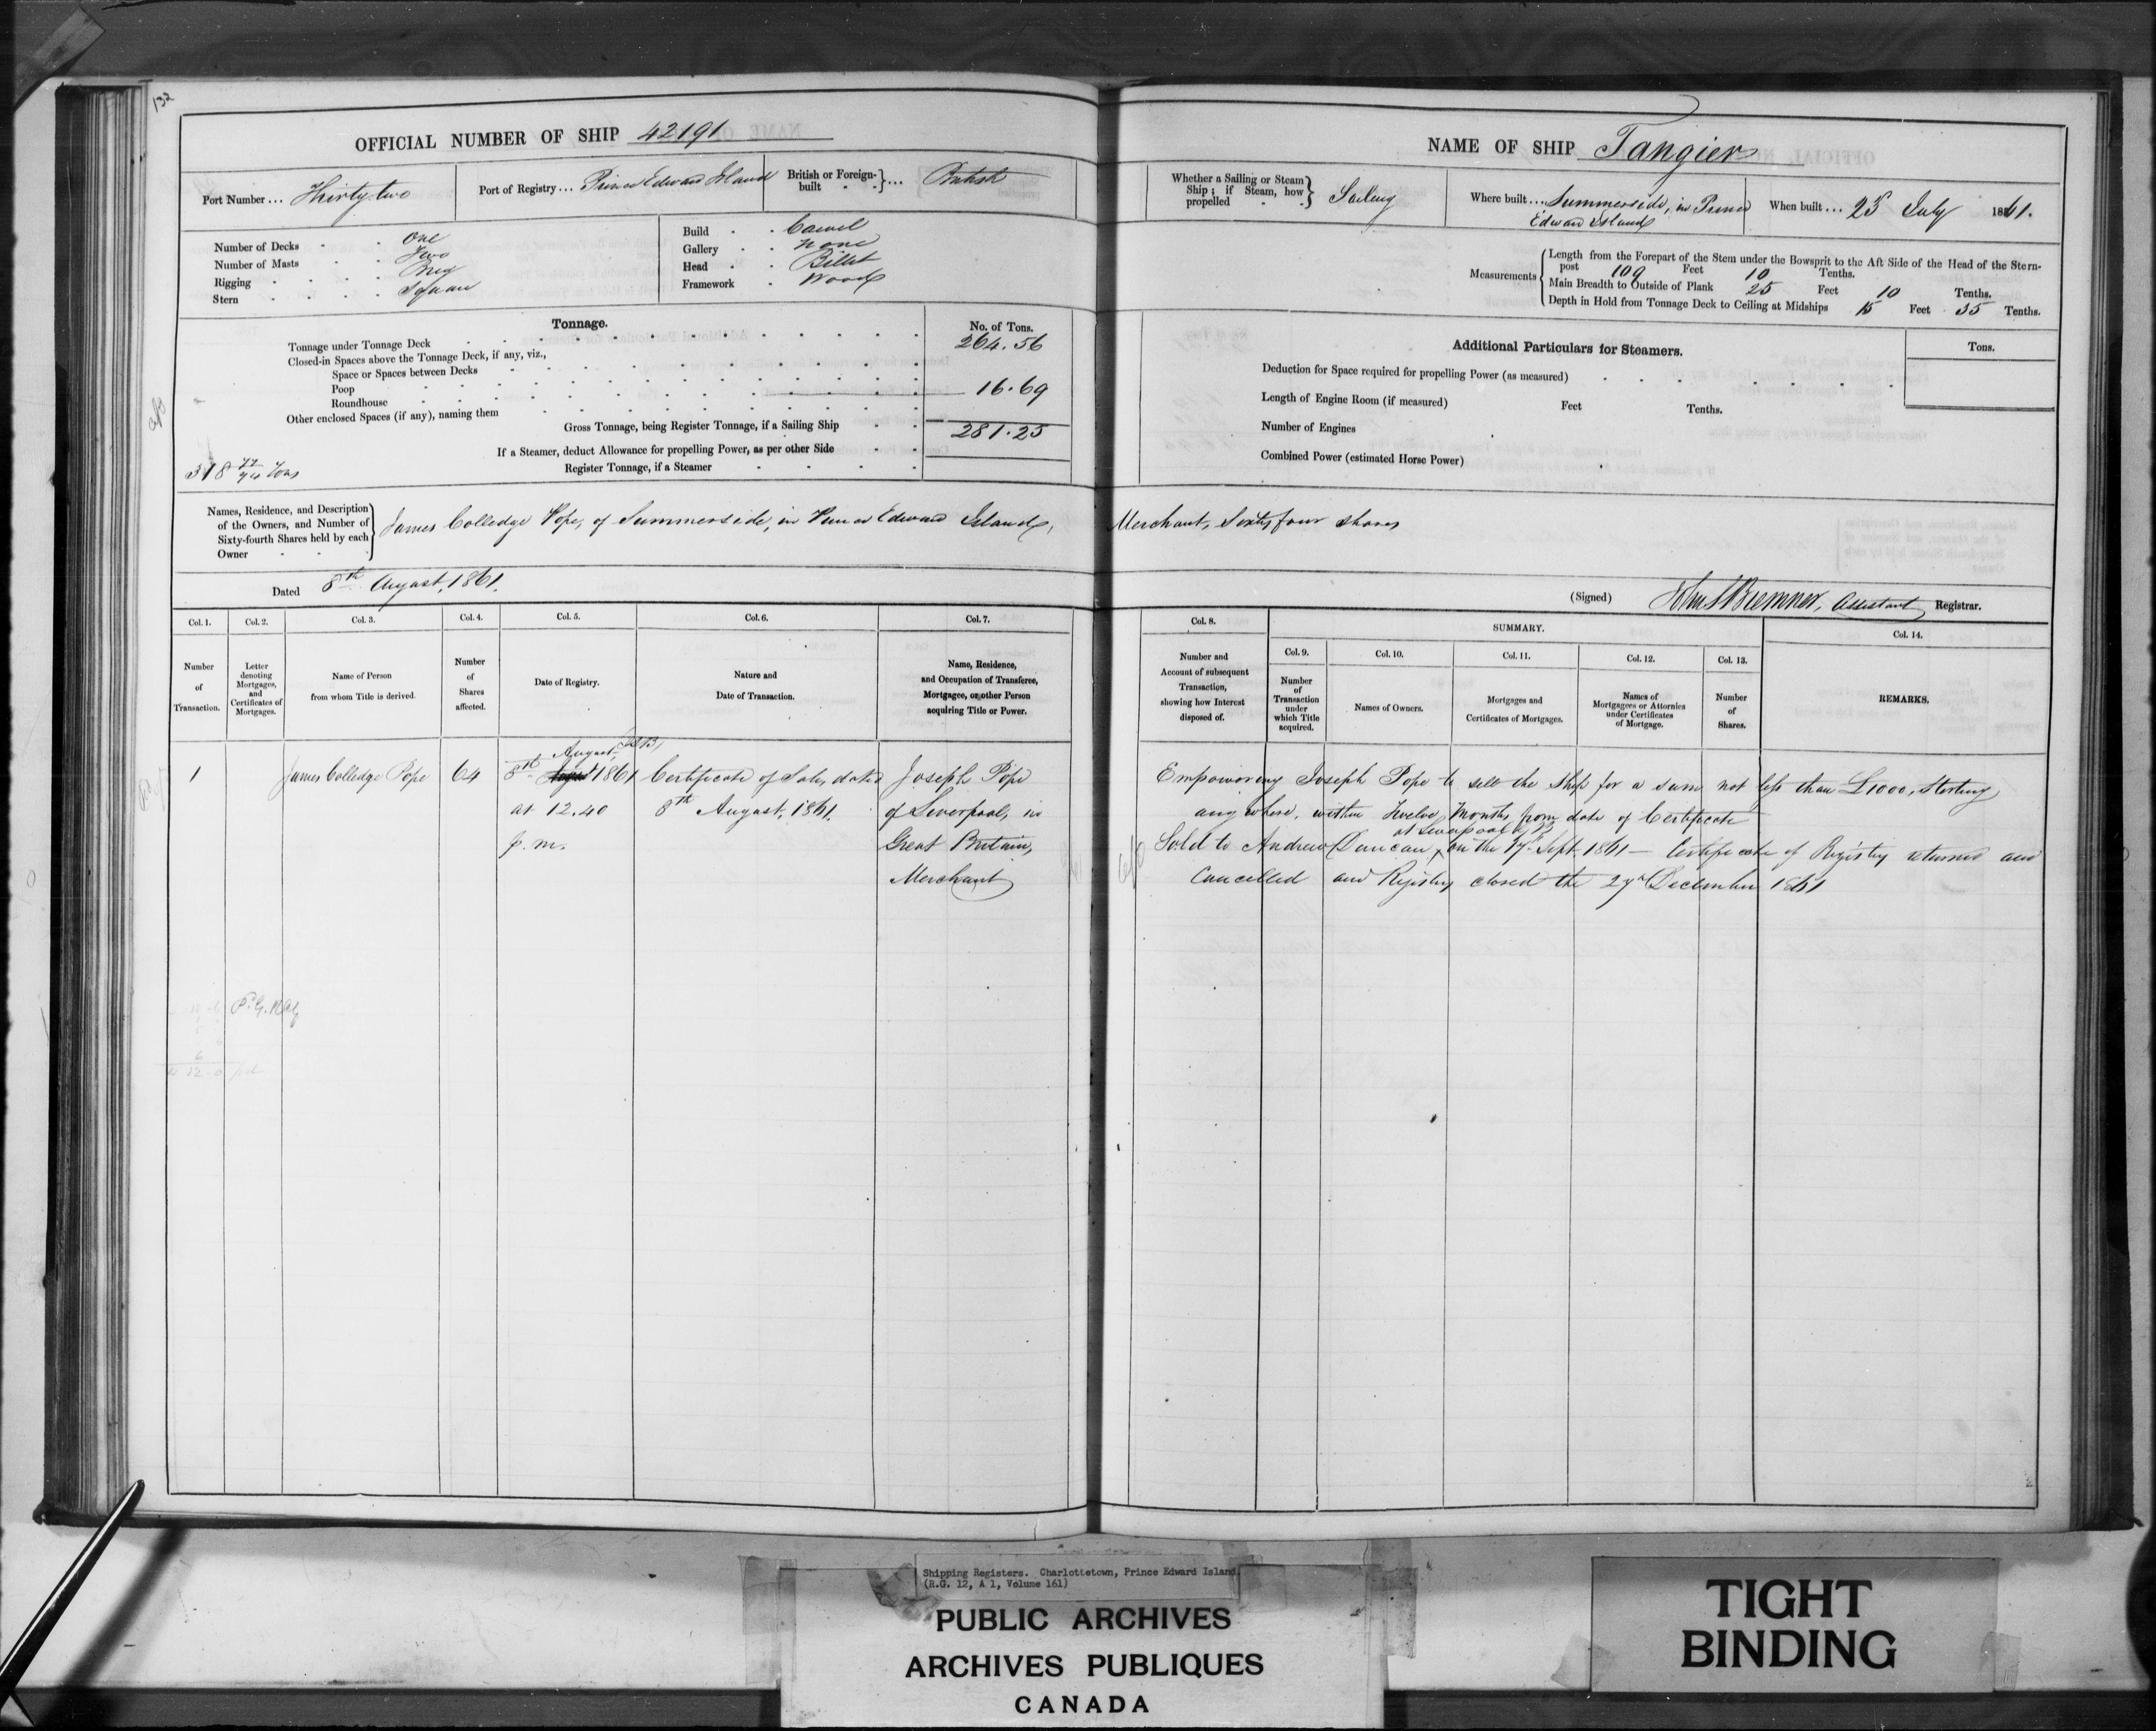 132
OFFICIAL NUMBER OF SHIP 42191
Port Number ... Thirty two
Port of Registry ... Prince Edward Island
British or Foreign-built ... British
Number of Decks . . One
Number of Masts . . Two
Rigging . . . . Brig
Stern . . . . Square
Build . . Carvel
Gallery . . None
Head . . Billet
Framework . Wood
Tonnage.
No. of Tons.
Tonnage under Tonnage Deck 264.56
Closed-in Spaces above the Tonnage Deck, if any, viz.,
Space or Spaces between Decks
Poop 16.69
Roundhouse
Other enclosed Spaces (if any), naming them
Gross Tonnage, being Register Tonnage, if a Sailing Ship 281.25
If a Steamer, deduct Allowance for propelling Power, as per other Side
Register Tonnage, if a Steamer
318 Tons
Names, Residence, and Description of the Owners, and Number of Sixty-fourth Shares held by each Owner
James Colledge Pope, of Summerside, in Prince Edward Island,
Dated 8th August, 1861.
Col. 1. Col. 2. Col. 3. Col. 4. Col. 5. Col. 6. Col. 7.
Number of Transaction.
Letter denoting Mortgages, and Certificates of Mortgages.
Name of Person from whom Title is derived.
Number of Shares affected.
Date of Registry.
Nature and Date of Transaction.
Name, Residence, and Occupation of Transferee, Mortgagee, or other Person acquiring Title or Power.
August
1 James Colledge Pope 64 8th August 1861 Certificate of Sale, dated Joseph Pope
at 12.40 8th August, 1861. of Liverpool, in
p.m. Great Britain,
Merchant
NAME OF SHIP Tangier
Whether a Sailing or Steam Ship; if Steam, how propelled Sailing
Where built ... Summerside, in Prince
Edward Island
When built ... 23 July 1861.
Measurements
Length from the Forepart of the Stem under the Bowsprit to the Aft Side of the Head of the Stern-
post 109 Feet 10 Tenths.
Main Breadth to Outside of Plank 25 Feet 10 Tenths.
Depth in Hold from Tonnage Deck to Ceiling at Midships 15 Feet 35 Tenths.
Additional Particulars for Steamers.
Tons.
Deduction for Space required for propelling Power (as measured)
Length of Engine Room (if measured) Feet Tenths.
Number of Engines
Combined Power (estimated Horse Power)
Merchant, Sixty four shares
(Signed) Bremner, Assistant Registrar.
Col. 8.
SUMMARY.
Col. 9. Col. 10. Col. 11. Col. 12. Col. 13. Col. 14.
Number and Account of subsequent Transaction, showing how Interest disposed of.
Number of Transaction under which Title acquired.
Names of Owners.
Mortgages and Certificates of Mortgages.
Names of Mortgagees or Attornies under Certificates of Mortgage.
Number of Shares.
REMARKS.
Empowering Joseph Pope to sell the Ship for a sum not less than £1000, Sterling
any where, within Twelve Months from date of Certificate
at Liverpool G B
Sold to Andrew Duncan, on the 17th Sept. 1861 — Certificate of Registry returned and
Cancelled and Registry closed the 27th December 1861
Shipping Registers. Charlottetown, Prince Edward Island.
(R.G. 12, A 1, Volume 161)
PUBLIC ARCHIVES
ARCHIVES PUBLIQUES
CANADA
TIGHT
BINDING